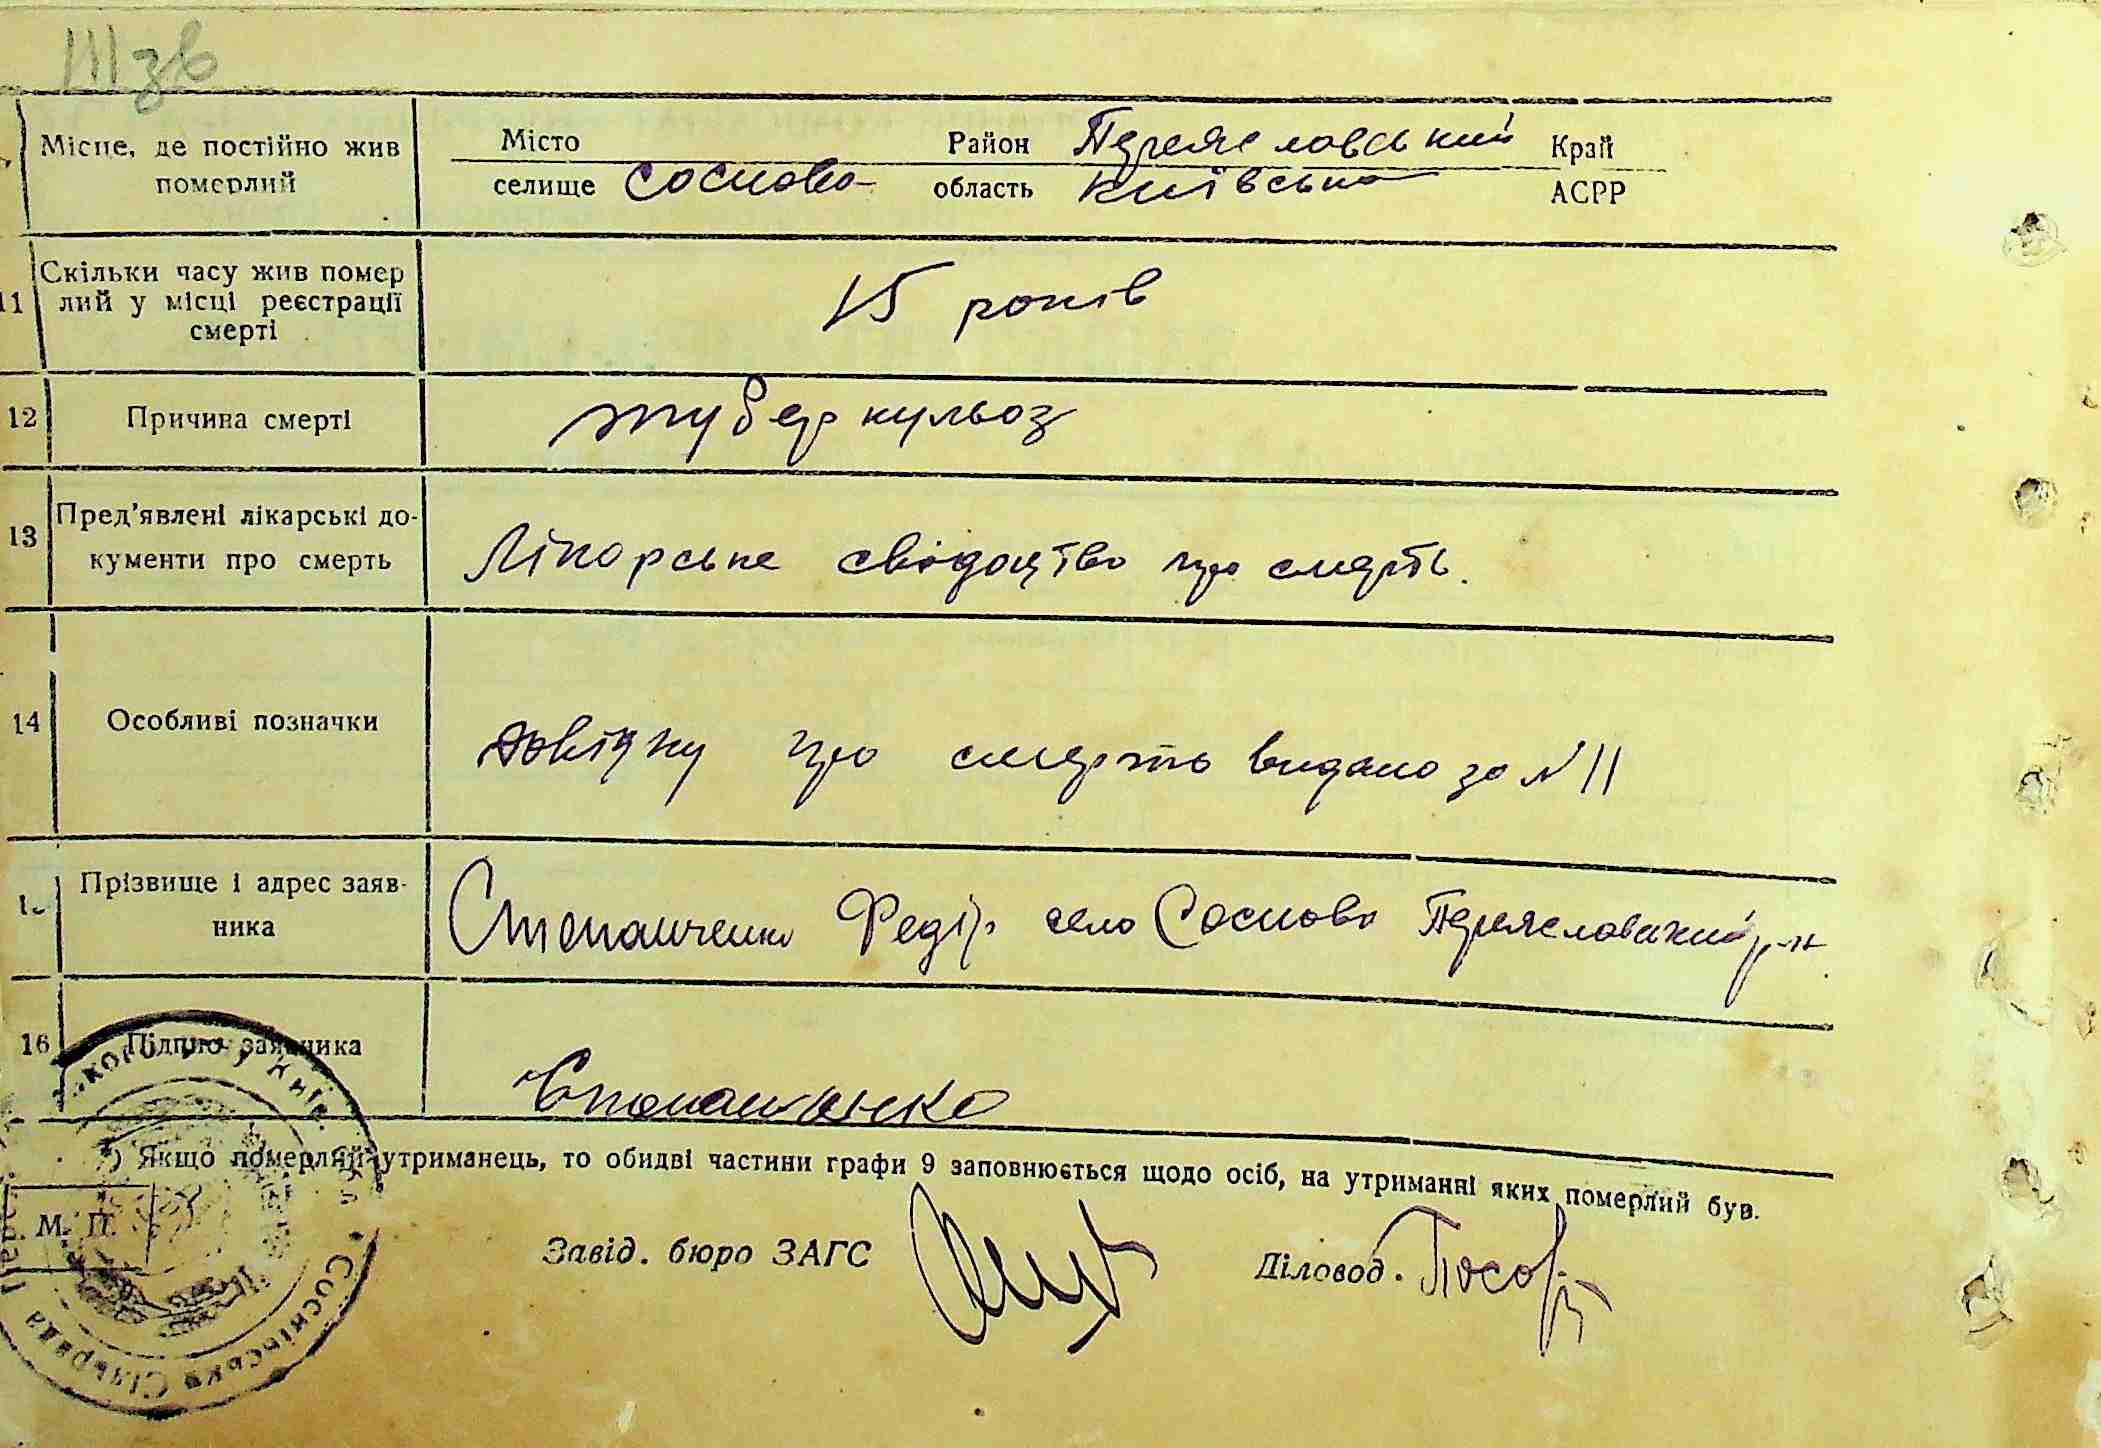 III зв
Місце, де постійно жив
померлий
Місто
селище Соснова
Район Переяславський
область Київська
Край
АСРР
11
Скільки часу жив помер
лий у місці реєстрації
смерті
15 років
12
Причина смерті
туберкульоз
13
Пред'явлені лікарські до-
кументи про смерть
Лікарське свідоцтво про смерть.
14
Особливі позначки
довідку про смерть видано за № 11
Прізвище і адрес заяв-
ника
Степанченко Федір село Соснова Переяславський р-н
16
Підпис заявника
Степаненко
Якщо померлий утриманець, то обидві частини графи 9 заповнюється щодо осіб, на утриманні яких померлий був.
М. П.
Соснівська Сільрада
Завід. бюро ЗАГС
Діловод.